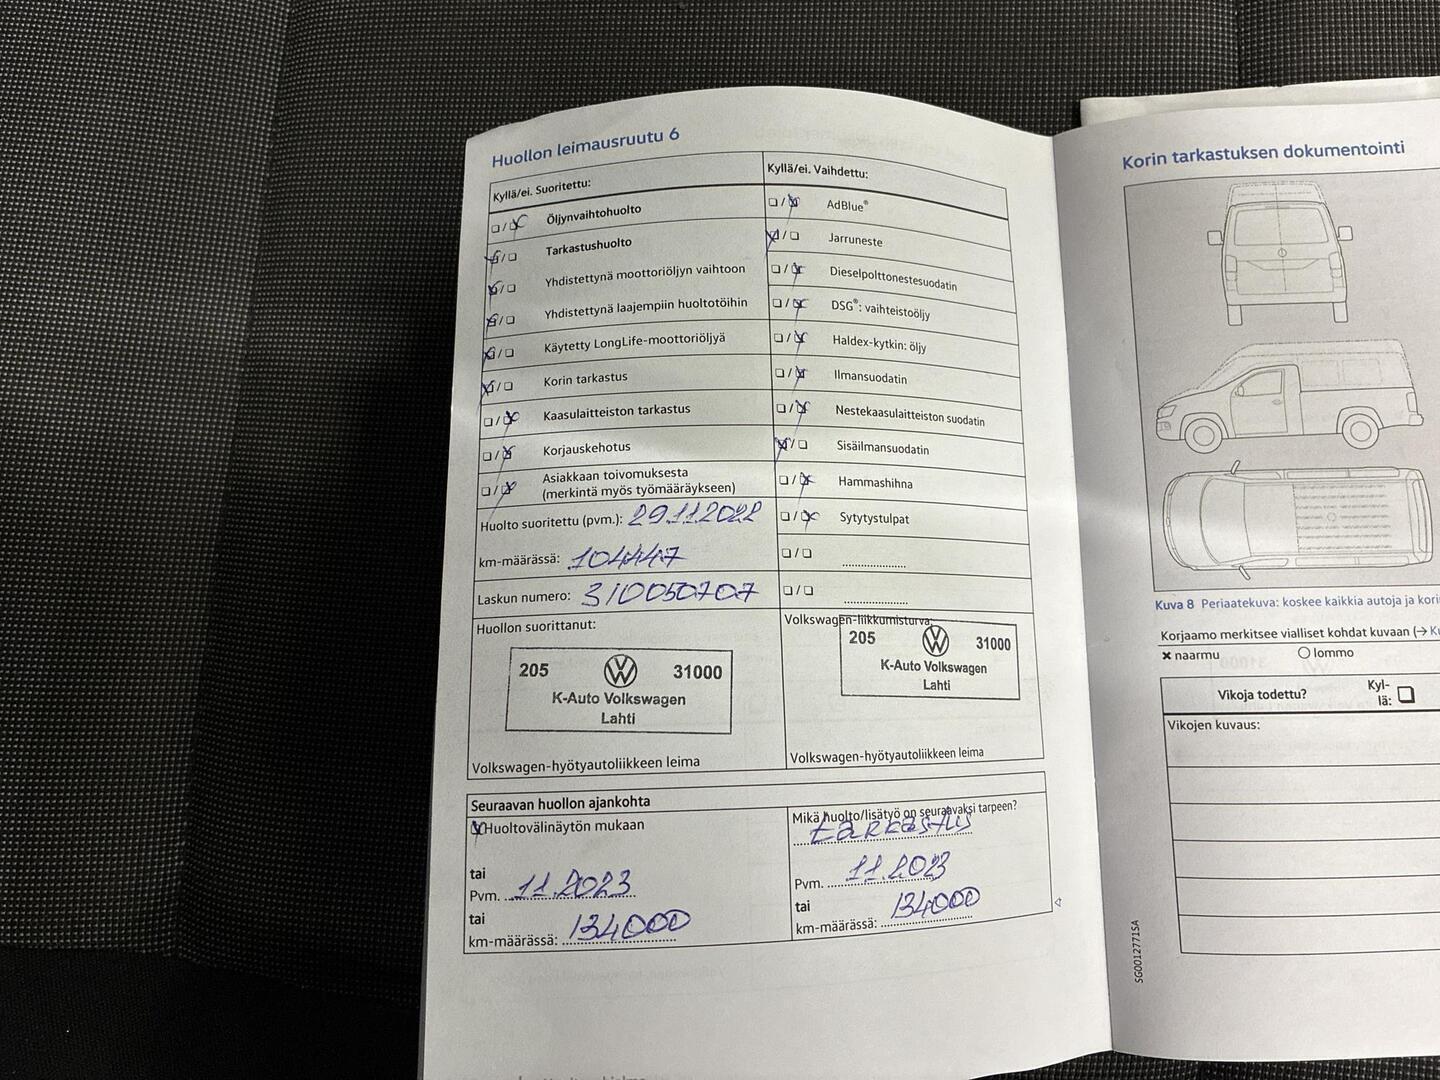 Huollon leimausruutu 6
Kyllä/ei. Suoritettu:
☐/☒ Öljynvaihtohuolto
☒/☐ Tarkastushuolto
☒/☐ Yhdistettynä moottoriöljyn vaihtoon
☒/☐ Yhdistettynä laajempiin huoltotöihin
☒/☐ Käytetty LongLife-moottoriöljyä
☒/☐ Korin tarkastus
☐/☒ Kaasulaitteiston tarkastus
☐/☒ Korjauskehotus
☐/☒ Asiakkaan toivomuksesta
(merkintä myös työmääräykseen)
Huolto suoritettu (pvm.): 29.11.2022
km-määrässä: 104447
Laskun numero: 310050707
Huollon suorittanut:
205 31000
K-Auto Volkswagen
Lahti
Volkswagen-hyötyautoliikkeen leima
Kyllä/ei. Vaihdettu:
☐/☒ AdBlue®
☒/☐ Jarruneste
☐/☒ Dieselpolttonestesuodatin
☐/☒ DSG®: vaihteistoöljy
☐/☒ Haldex-kytkin: öljy
☐/☒ Ilmansuodatin
☐/☒ Nestekaasulaitteiston suodatin
☒/☐ Sisäilmansuodatin
☐/☒ Hammashihna
☐/☒ Sytytystulpat
☐/☐ ....................
☐/☐ ....................
Volkswagen-liikkumisturva:
205 31000
K-Auto Volkswagen
Lahti
Volkswagen-hyötyautoliikkeen leima
Seuraavan huollon ajankohta
☒ Huoltovälinäytön mukaan
tai
Pvm. 11.2023
tai
km-määrässä: 134000
Mikä huolto/lisätyö on seuraavaksi tarpeen?
tarkastus
Pvm. 11.2023
tai
km-määrässä: 134000
Korin tarkastuksen dokumentointi
Kuva 8 Periaatekuva: koskee kaikkia autoja ja kori
Korjaamo merkitsee vialliset kohdat kuvaan (→ Ku
× naarmu ○ lommo
Vikoja todettu? Kyl-
lä: ☐
Vikojen kuvaus:
SG0012771SA